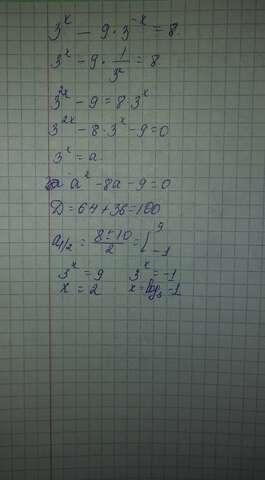 3^x - 9·3^-x = 8
3^x - 9·1/3^x = 8
3^2x - 9 = 8·3^x
3^2x - 8·3^x - 9 = 0
3^x = a
a² - 8a - 9 = 0
D = 64 + 36 = 100
a1/2 = (8 ± 10)/2 = [9 -1
3^x = 9 3^x = -1
x = 2 x = log3 -1